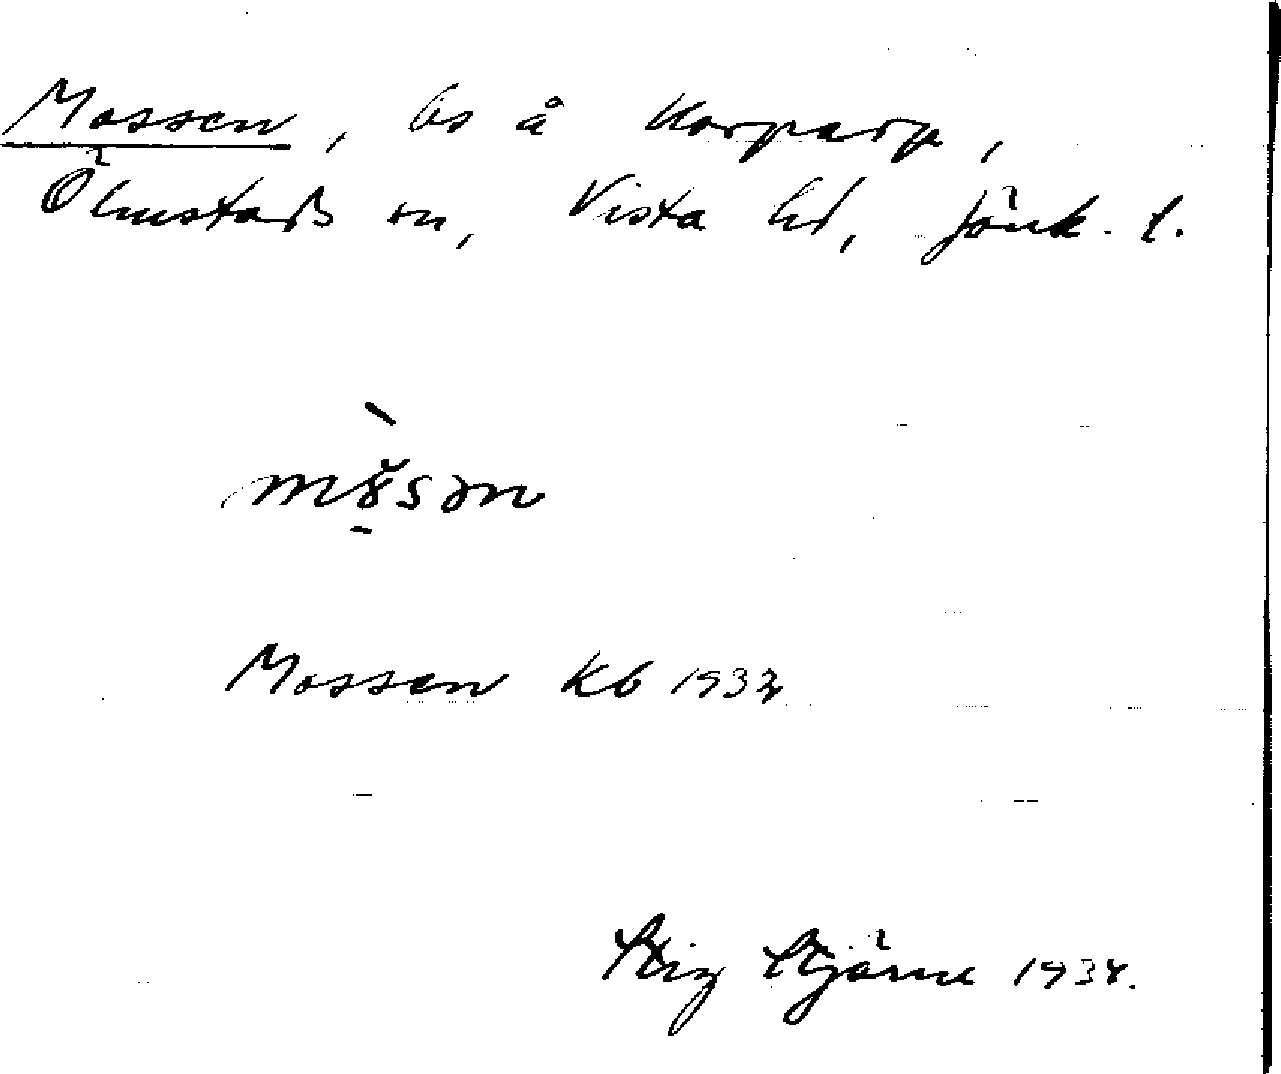 Mossen, ls å Korparp,
Ölmstads sn, Vista hd, Jönk. l.
Mossen Kb 1932
Stig Stjärne 1934.